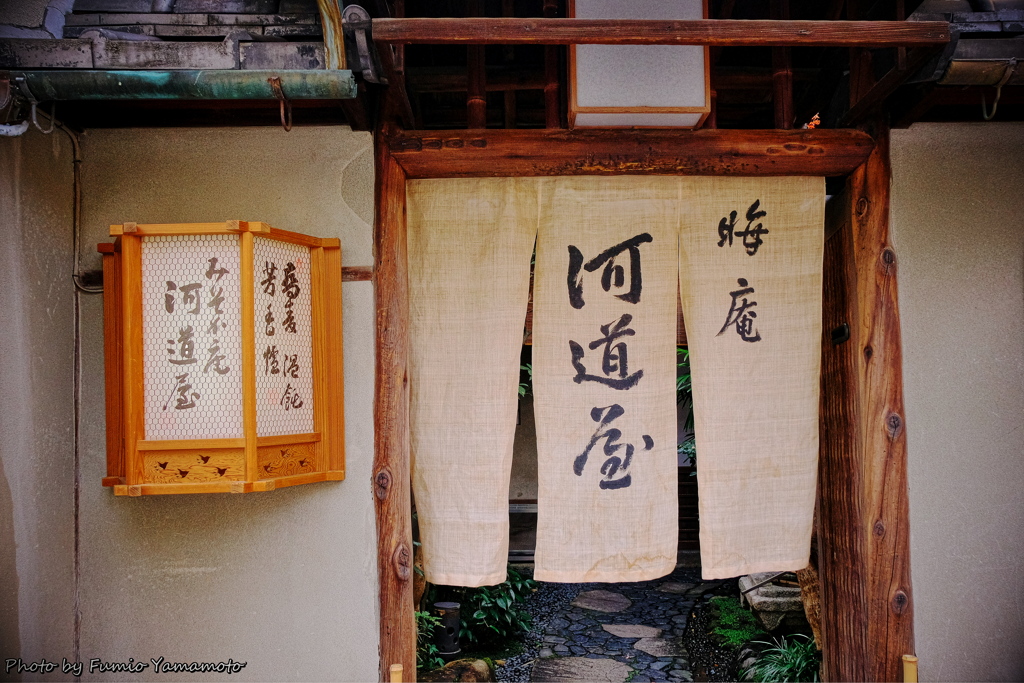 蕎麦 温飩
芳香爐
みそか庵
河道屋
晦庵
河道屋
Photo by Fumio Yamamoto